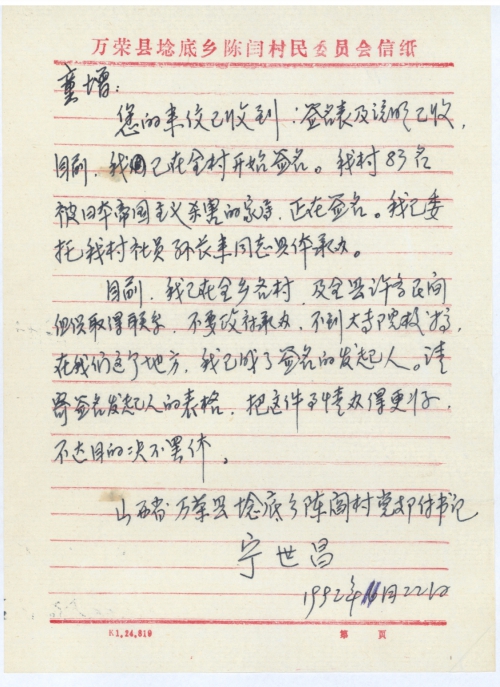 万荣县埝底乡陈闫村民委员会信纸
童增：
您的来信已收到，签名表及说明已收，
目前，我已在全村开始签名。我村83名
被日本帝国主义杀害的家属，正在签名。我已委
托我村社员孙长来同志具体承办。
目前，我已在全乡各村，及全县许多民间
组织取得联系，不要政府承办，不到大寺院
在我们这个地方，我已成了签名的发起人。请
寄签名发起人的表格，把这件事情办得更好，
不达目的决不罢休。
山西省万荣县埝底乡陈阎村党支部付书记
宁世昌
1992年11月22日
K1.24.819 第 页